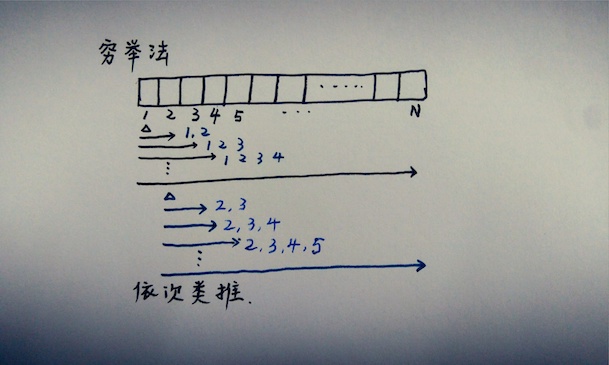 穷举法
1 2 3 4 5 ... N
1,2
1 2 3
1 2 3 4
2,3
2,3,4
2,3,4,5
依次类推.